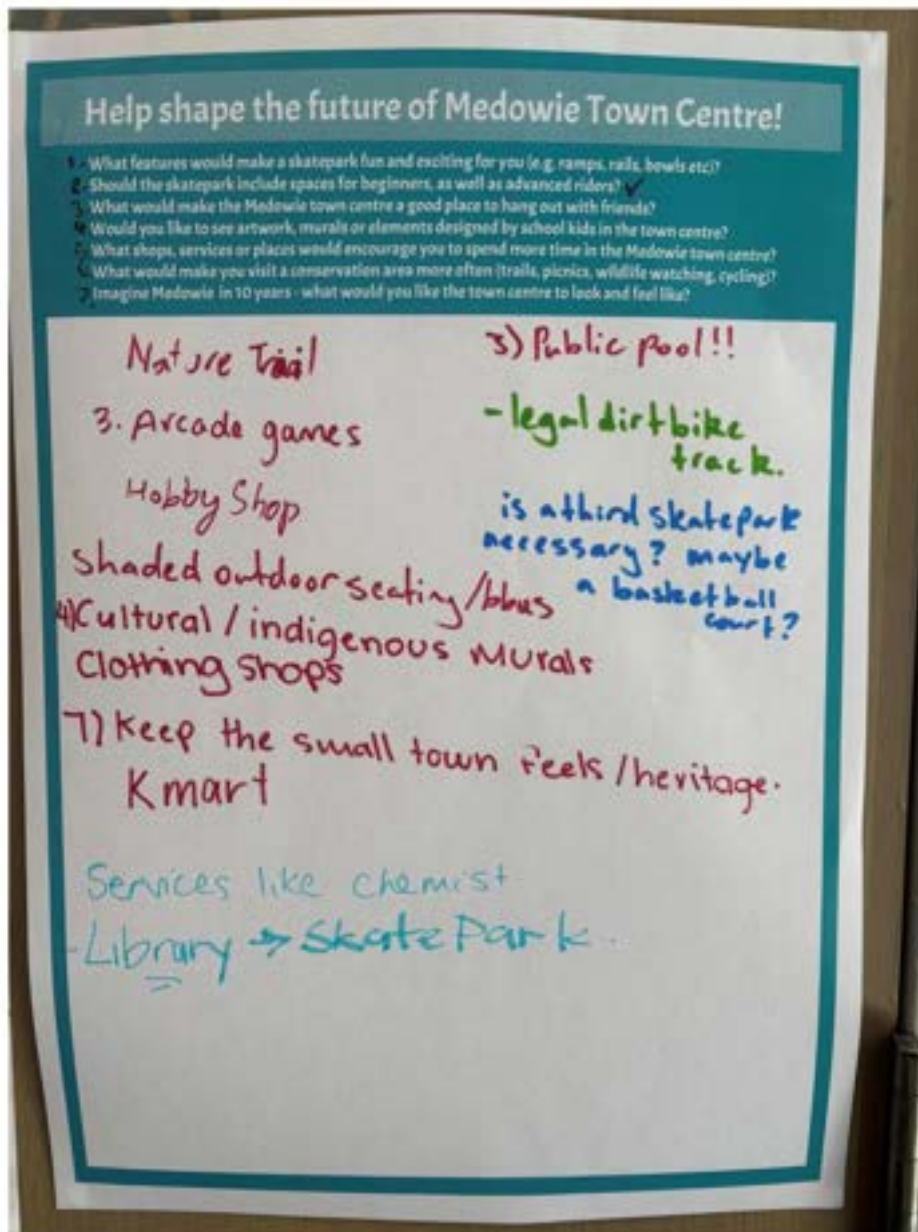 Help shape the future of Medowie Town Centre!
1 - What features would make a skatepark fun and exciting for you (e.g. ramps, rails, bowls etc)?
2 - Should the skatepark include spaces for beginners, as well as advanced riders? ✓
3 - What would make the Medowie town centre a good place to hang out with friends?
4 - Would you like to see artwork, murals or elements designed by school kids in the town centre?
5 - What shops, services or places would encourage you to spend more time in the Medowie town centre?
6 - What would make you visit a conservation area more often (trails, picnics, wildlife watching, cycling)?
7 Imagine Medowie in 10 years - what would you like the town centre to look and feel like?
Nature Trail
3. Arcade games
Hobby Shop
shaded outdoor seating/bbus
4) Cultural / indigenous Murals
Clothing shops
7) Keep the small town feels /heritage.
Kmart
Services like chemist
- Library → Skate Park
3) Public pool!!
- legal dirtbike
track.
is a third skatepark
necessary? maybe
a basketball
court?